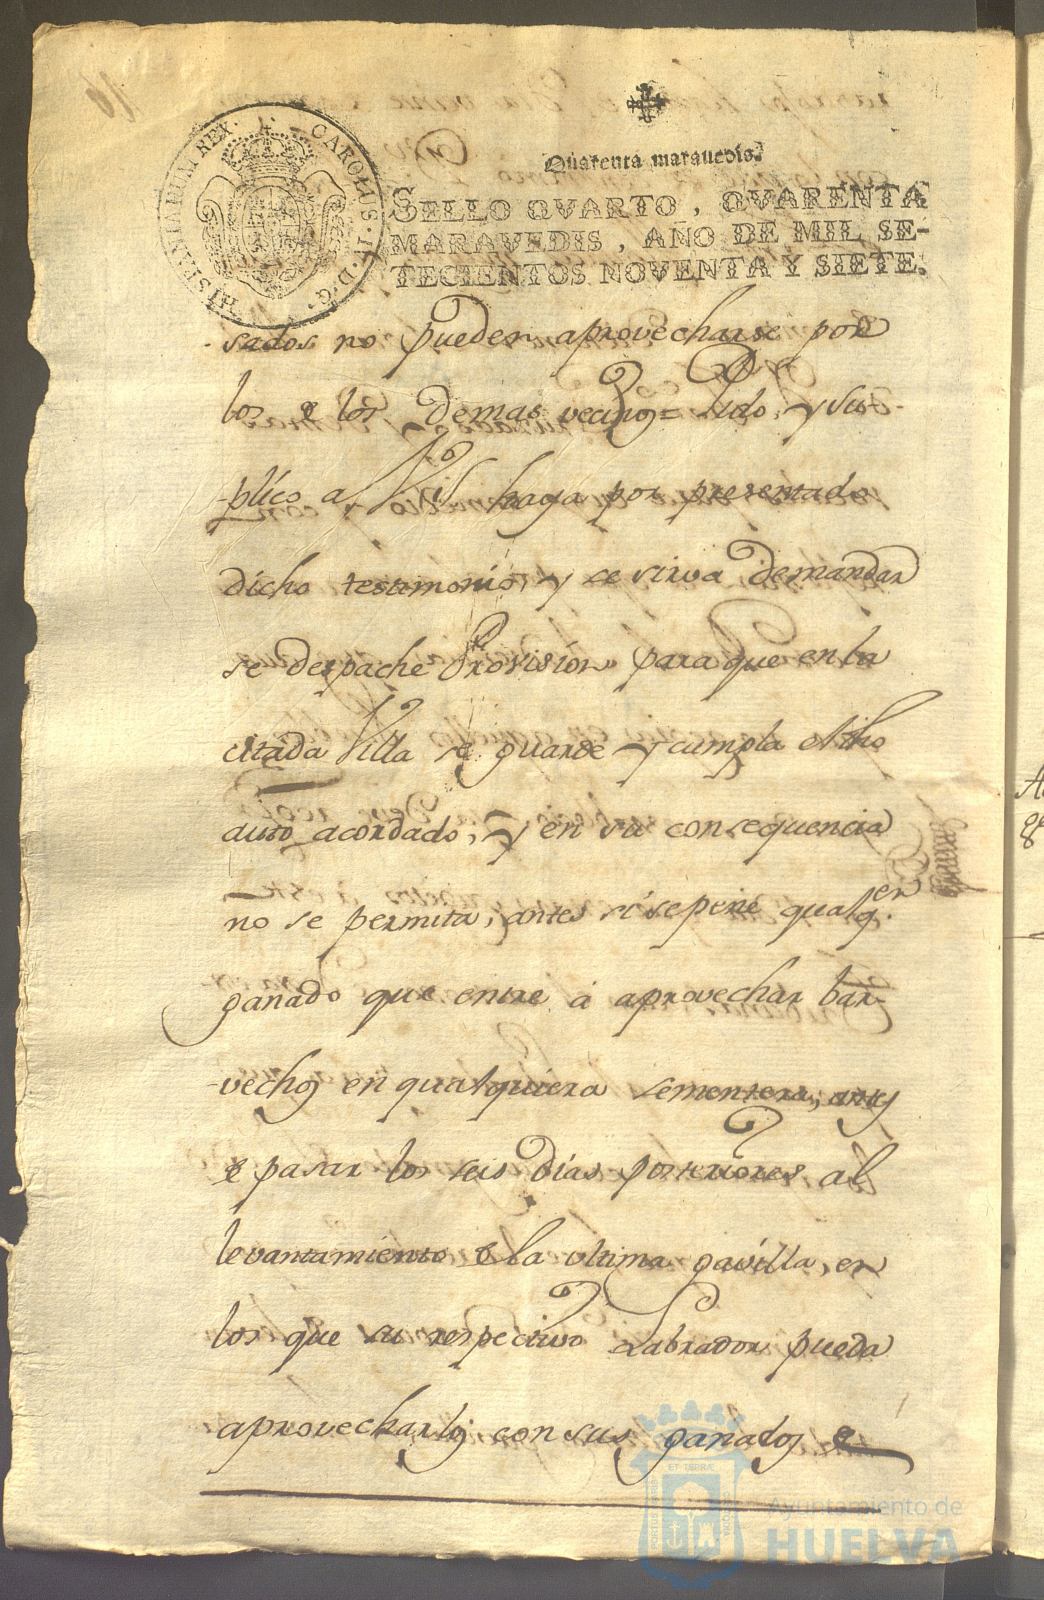 HISPANIARUM REX. CAROLUS. IV. D. G.
Quarenta marauedis.
SELLO QVARTO, QVARENTA
MARAVEDIS, AÑO DE MIL SE-
TECIENTOS NOVENTA Y SIETE.
sados no pueden aprovecharse por
los de los demas vecinos= Pido, y su-
plico a V.S. haya por presentado
dicho testimonio, y se sirva demandar
se despache Provision para que en la
citada Villa se guarde y cumpla el dho
auto acordado, y en su consequencia
no se permita, antes si se pene qualqer
ganado que entre á aprovechar bar-
vechos en qualquiera sementera, antes
de pasar los seis dias posteriores al
levantamiento de la ultima gavilla, en
los que su respectivo Labrador pueda
aprovecharlos con sus ganados
Ayuntamiento de
HUELVA